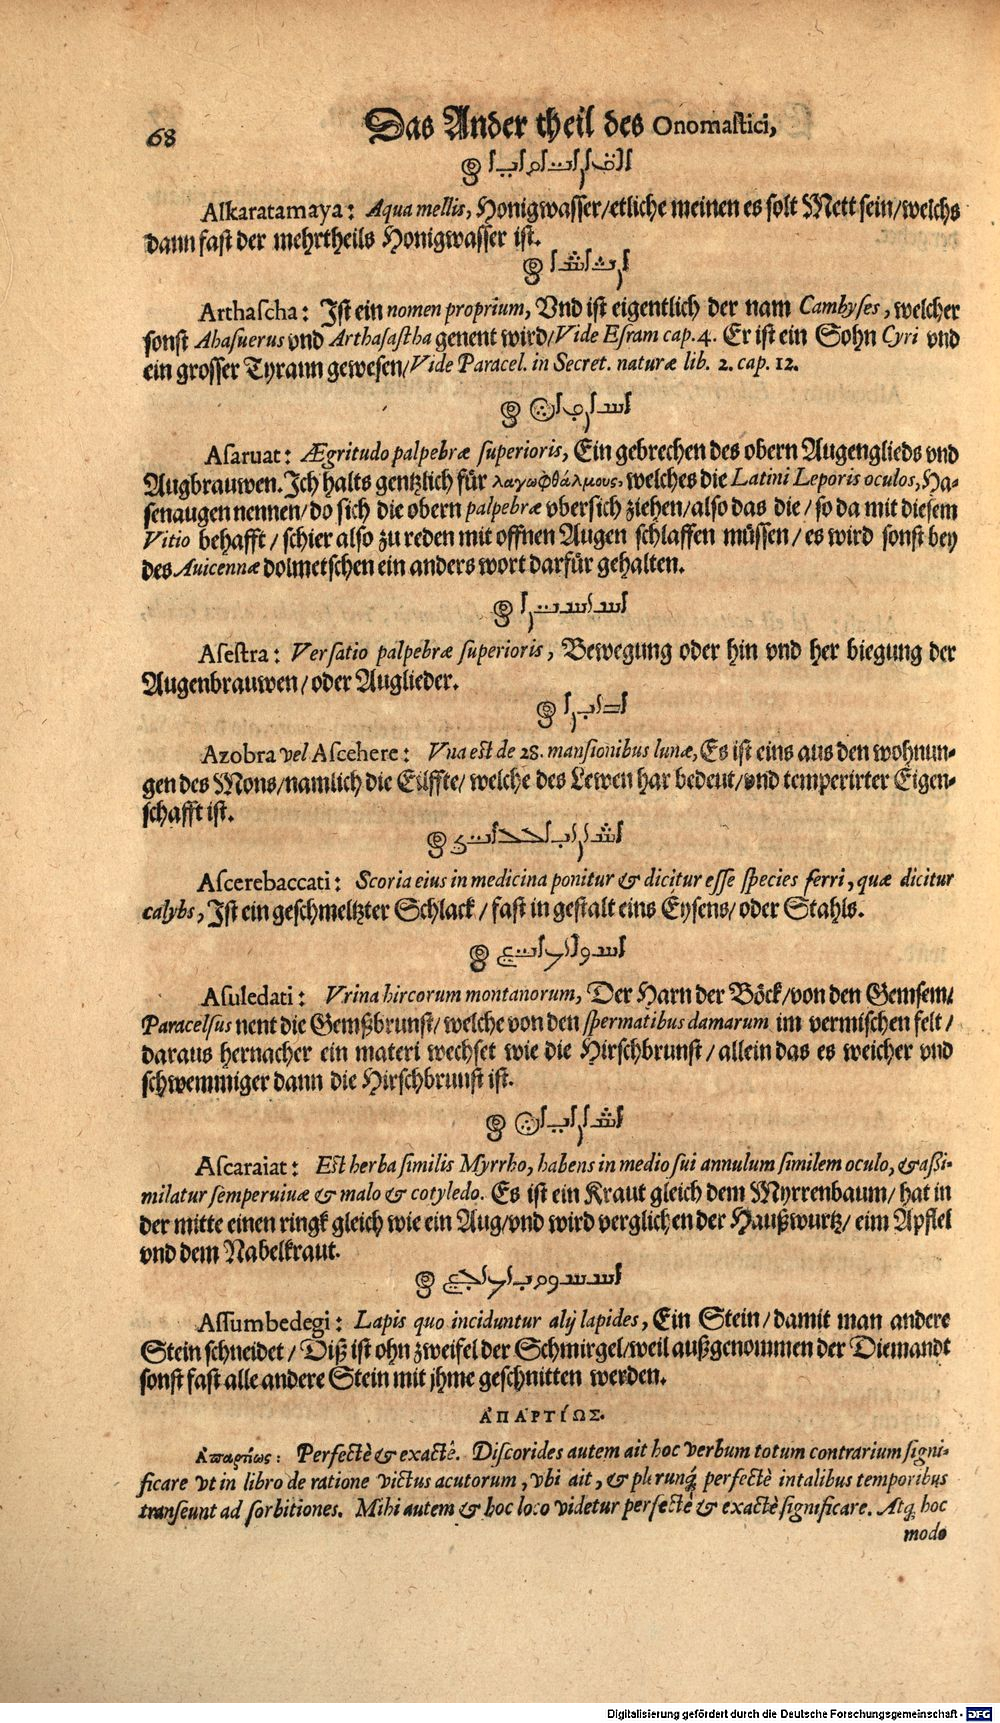 68
Das Ander theil des Onomastici,
Alkaratamaya: Aqua mellis, Honigwasser/etliche meinen es solt Mett sein/welchs
dann fast der mehrtheils Honigwasser ist.
Arthascha: Ist ein nomen proprium, Vnd ist eigentlich der nam Cambyses, welcher
sonst Ahasuerus vnd Arthasastha genent wird/Vide Esram cap. 4. Er ist ein Sohn Cyri vnd
ein grosser Tyrann gewesen/Vide Paracel. in Secret. naturæ lib. 2. cap. 12.
Asaruat: Ægritudo palpebræ superioris, Ein gebrechen des obern Augenglieds vnd
Augbrauwen. Ich halts gentzlich für λαγωφθάλμους, welches die Latini Leporis oculos, Ha-
senaugen nennen/do sich die obern palpebræ vbersich ziehen/also das die/so da mit diesem
Vitio behafft/schier also zu reden mit offnen Augen schlaffen müssen/es wird sonst bey
des Auicennæ dolmetschen ein anders wort darfür gehalten.
Asestra: Versatio palpebræ superioris, Bewegung oder hin vnd her biegung der
Augenbrauwen/oder Auglieder.
Azobra vel Ascehere: Vna est de 28. mansionibus lunæ, Es ist eins aus den wohnun-
gen des Mons/namlich die Eilffte/welche des Lewen har bedeut/vnd temperirter Eigen-
schafft ist.
Ascerebaccati: Scoria eius in medicina ponitur & dicitur esse species ferri, quæ dicitur
calybs, Ist ein geschmeltzter Schlack/fast in gestalt eins Eysens/oder Stahls.
Asuledati: Vrina hircorum montanorum, Der Harn der Böck/von den Gemsem/
Paracelsus nent die Gemßbrunst/welche von den spermatibus damarum im vermischen felt/
daraus hernacher ein materi wechset wie die Hirschbrunst/allein das es weicher vnd
schwemmiger dann die Hirschbrunst ist.
Ascaraiat: Est herba similis Myrrho, habens in medio sui annulum similem oculo, & aßi-
milatur semperuiuæ & malo & cotyledo. Es ist ein Kraut gleich dem Myrrenbaum/hat in
der mitte einen ringk gleich wie ein Aug/vnd wird verglichen der Haußwurtz/eim Apffel
vnd dem Nabelkraut.
Assumbedegi: Lapis quo inciduntur alij lapides, Ein Stein/damit man andere
Stein schneidet/Diß ist ohn zweifel der Schmirgel/weil außgenommen der Diemandt
sonst fast alle andere Stein mit jhme geschnitten werden.
ἈΠΑΡΤΊΩΣ.
Ἀπαρτίως: Perfectè & exactè. Discorides autem ait hoc verbum totum contrarium signi-
ficare vt in libro de ratione victus acutorum, vbi ait, & plerunq; perfectè in talibus temporibus
transeunt ad sorbitiones. Mihi autem & hoc loco videtur perfectè & exactè significare. Atq; hoc
modo
Digitalisierung gefördert durch die Deutsche Forschungsgemeinschaft - DFG